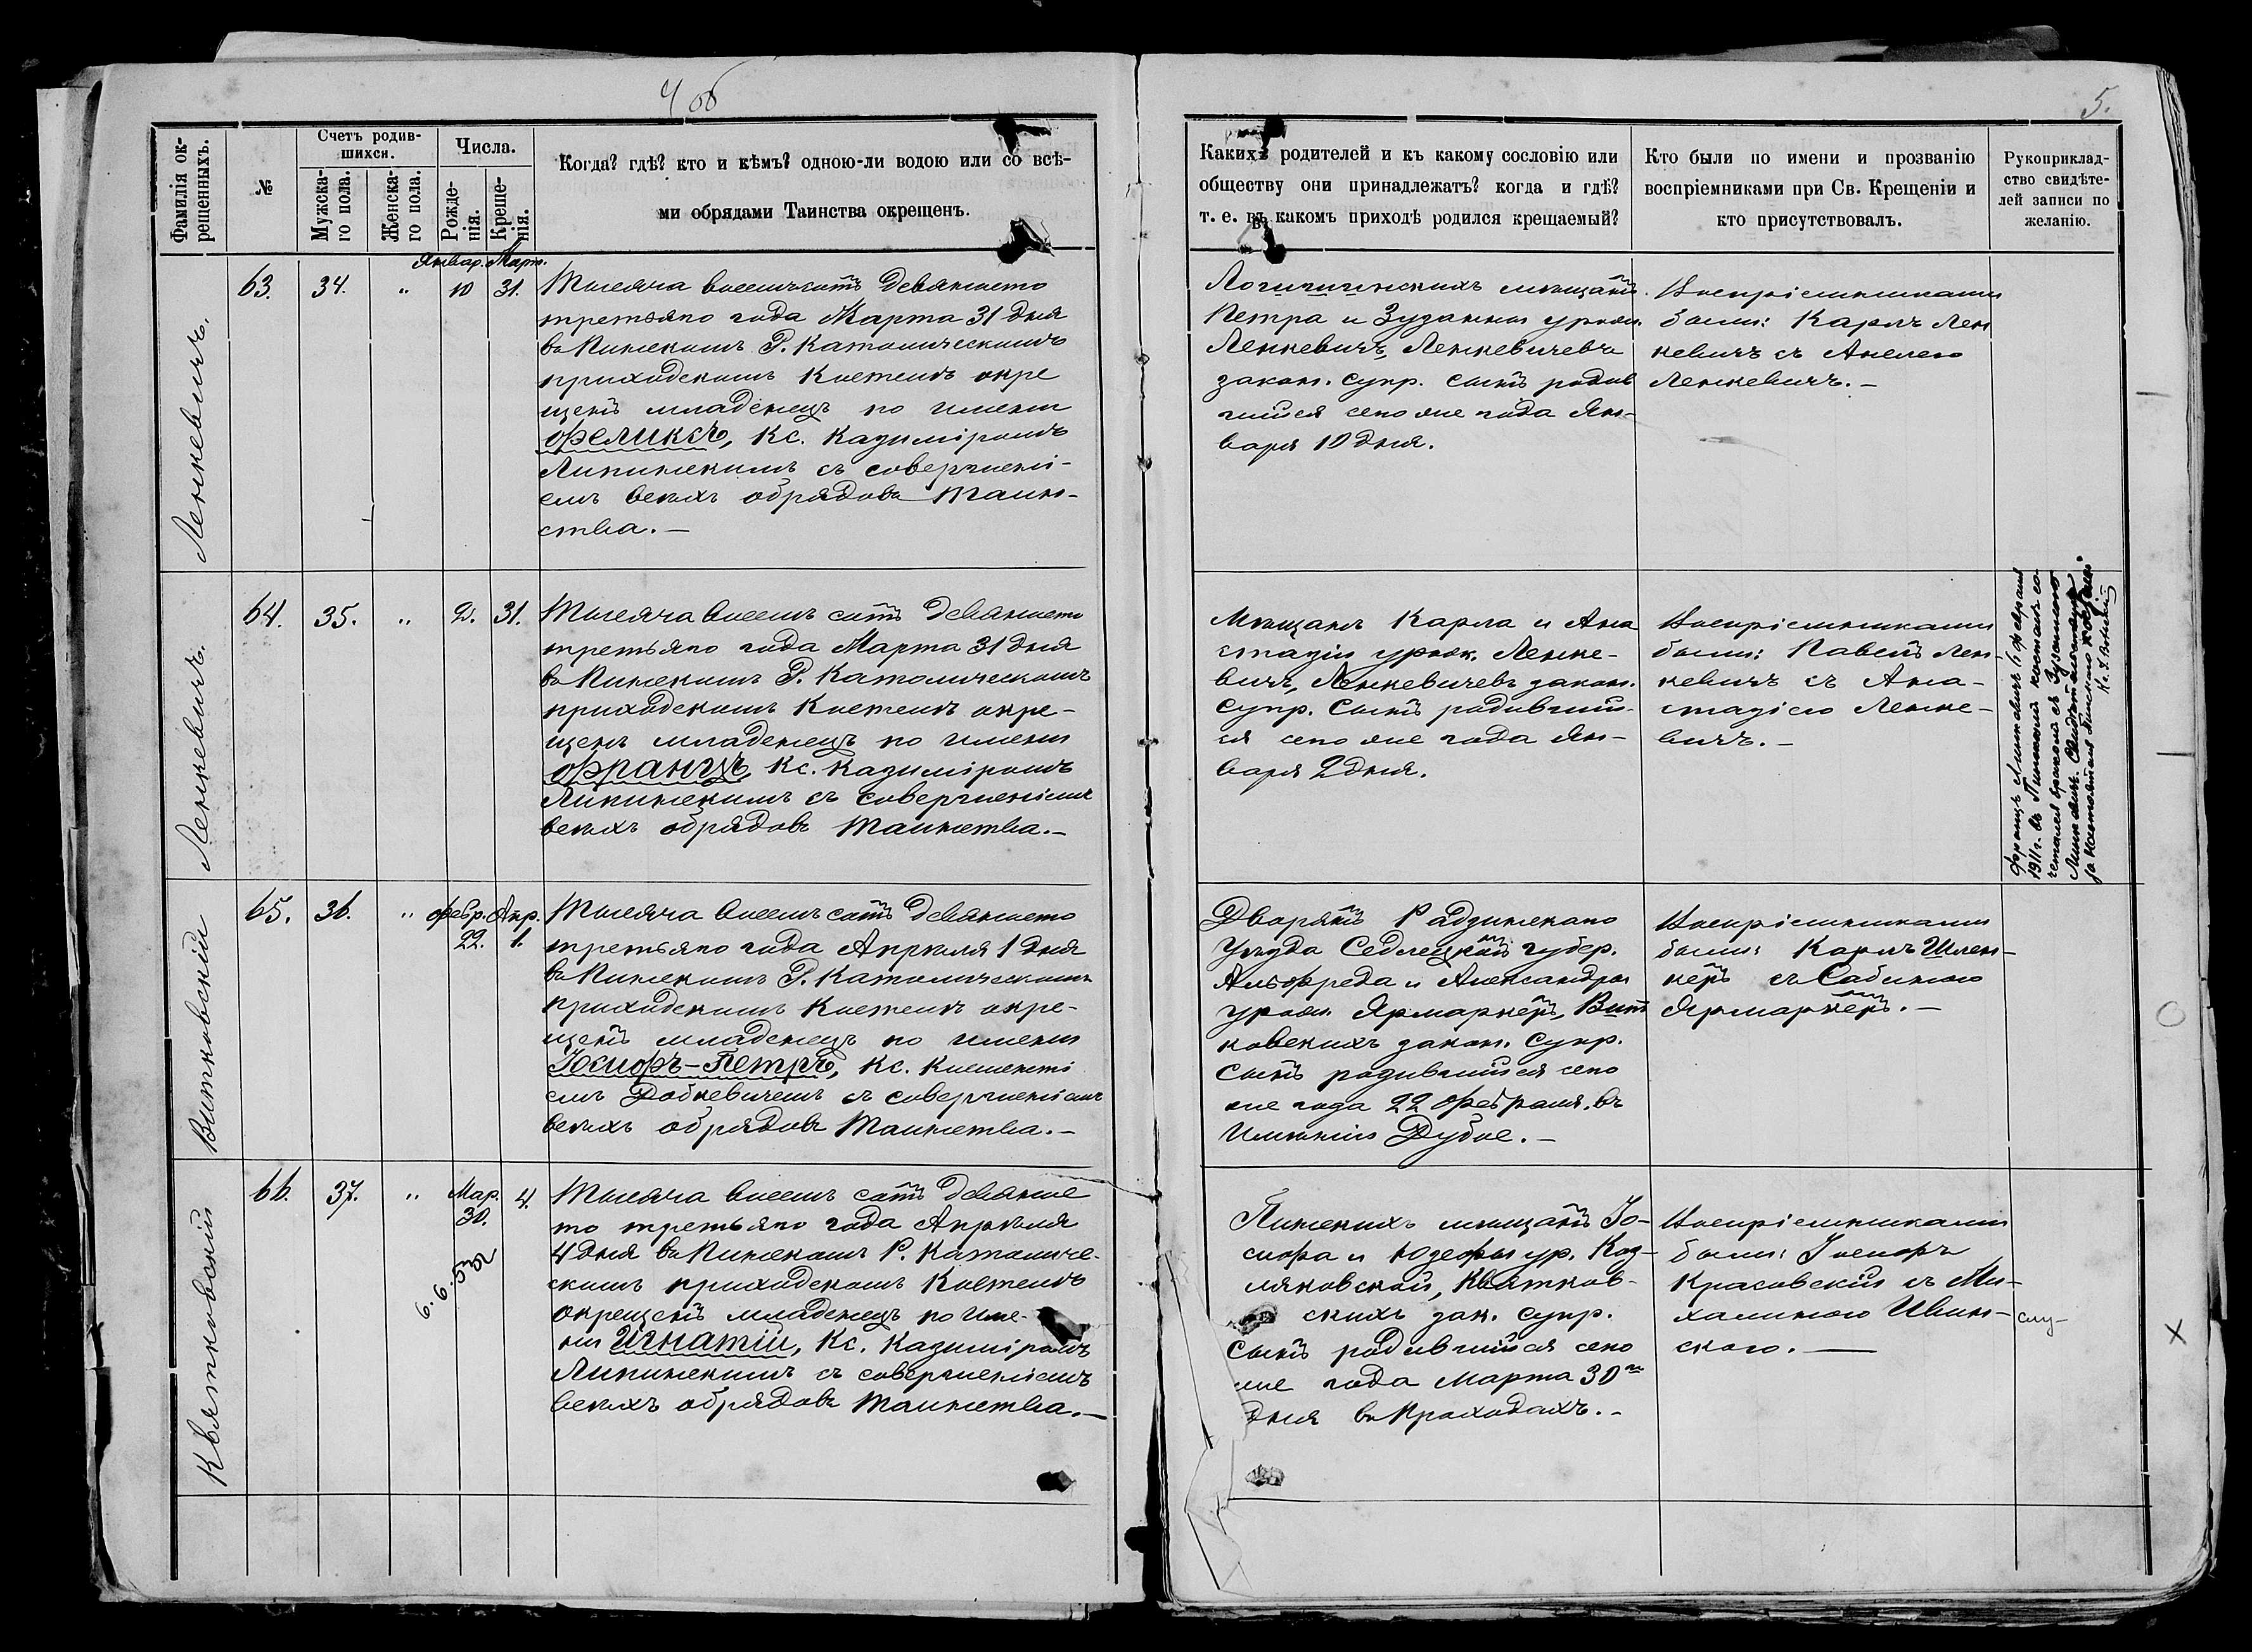 4 об
5.
Фамилія ок-
рещенныхъ.
№
Счетъ родив-
шихся.
Мужска-
го пола.
Женска-
го пола.
Числа.
Рожде-
нія.
Креще-
нія.
Когда? гдѣ? кто и кѣмъ? одною-ли водою или со всѣ-
ми обрядами Таинства окрещенъ.
Какихъ родителей и къ какому сословію или
обществу они принадлежатъ? когда и гдѣ?
т. е. въ какомъ приходѣ родился крещаемый?
Кто были по имени и прозванію
воспріемниками при Св. Крещеніи и
кто присутствовалъ.
Рукоприклад-
ство свидѣте-
лей записи по
желанію.
Ленкевичъ.
63.
34.
"
Январ.
10
Март.
31.
Тысяча восемьсотъ девяносто
третьяго года Марта 31 дня
въ Пинскомъ Р. Католическомъ
приходскомъ Костелѣ окре
щенъ младенецъ по имени
Феликсъ, Кс. Казиміромъ
Липинскимъ съ совершені-
емъ всѣхъ обрядовъ Таин-
ства.—
Логишинскихъ мѣщанъ
Петра и Зузанны урож.
Ленкевичъ, Ленкевичевъ
закон. супр. сынъ родив
шійся сего же года Ян-
варя 10 дня.
Воспріемниками
были: Карлъ Лен
кевичъ съ Анелею
Ленкевичъ.—
Ленкевичъ.
64.
35.
"
2.
31.
Тысяча восемъ сотъ девяносто
третьяго года Марта 31 дня
въ Пинскомъ Р. Католическомъ
приходскомъ Костелѣ окре-
щенъ младенецъ по имени
Францъ, Кс. Казиміромъ
Липинскимъ съ совершеніемъ
всѣхъ обрядовъ Таинства.—
Мѣщанъ Карла и Ана
стазіи урож. Ленке-
вичъ, Ленкевичевъ закон.
супр. сынъ родившій-
ся сего же года Ян-
варя 2 дня.
Воспріемниками
были: Павелъ Лен-
кевичъ съ Ана-
стазіею Ленке-
вичъ.—
Францъ Линкевичъ 6 февраля
1911 г. въ Пинскомъ костелѣ со-
четался бракомъ съ Зузанною
Линкевичъ.
Витковскій
65.
36.
"
Февр.
22.
Апр.
1.
Тысяча восемъ сотъ девяносто
третьяго года Апрѣля 1 дня
въ Пинскомъ Р. Католическомъ
приходскомъ Костелѣ окре-
щенъ младенецъ по имени
Іосифъ-Петръ, Кс. Клементі
емъ Добкевичемъ съ совершеніемъ
всѣхъ обрядовъ Таинства.—
Дворянъ Радзинскаго
Уѣзда Седлецкой губер.
Альфреда и Александры
урож. Ярмаркеръ, Вит
ковскихъ закон. супр.
сынъ родившійся сего
же года 22 Февраля, въ
Имѣніи Дубое.—
Воспріемниками
были: Карлъ Шлен-
керъ съ Сабиною
Ярмаркеръ.—
Квятковскій
66.
37.
"
Мар.
30.
4.
Тысяча восемъ сотъ девянос
то третьяго года Апрѣля
4 дня въ Пинскомъ Р. Католиче-
скомъ приходскомъ Костелѣ
окрещенъ младенецъ по име-
ни Игнатій, Кс. Казиміромъ
Липинскимъ съ совершеніемъ
всѣхъ обрядовъ Таинства.—
Пинскихъ мѣщанъ Іо-
сифа и Юзефы ур. Коз-
ляковской, Квятков-
скихъ зак. супр.
сынъ родившійся сего
же года Марта 30го
дня въ Проходахъ.—
Воспріемниками
были: Іосифъ
Красовскій съ Ми-
халиною Ивин-
скою.—